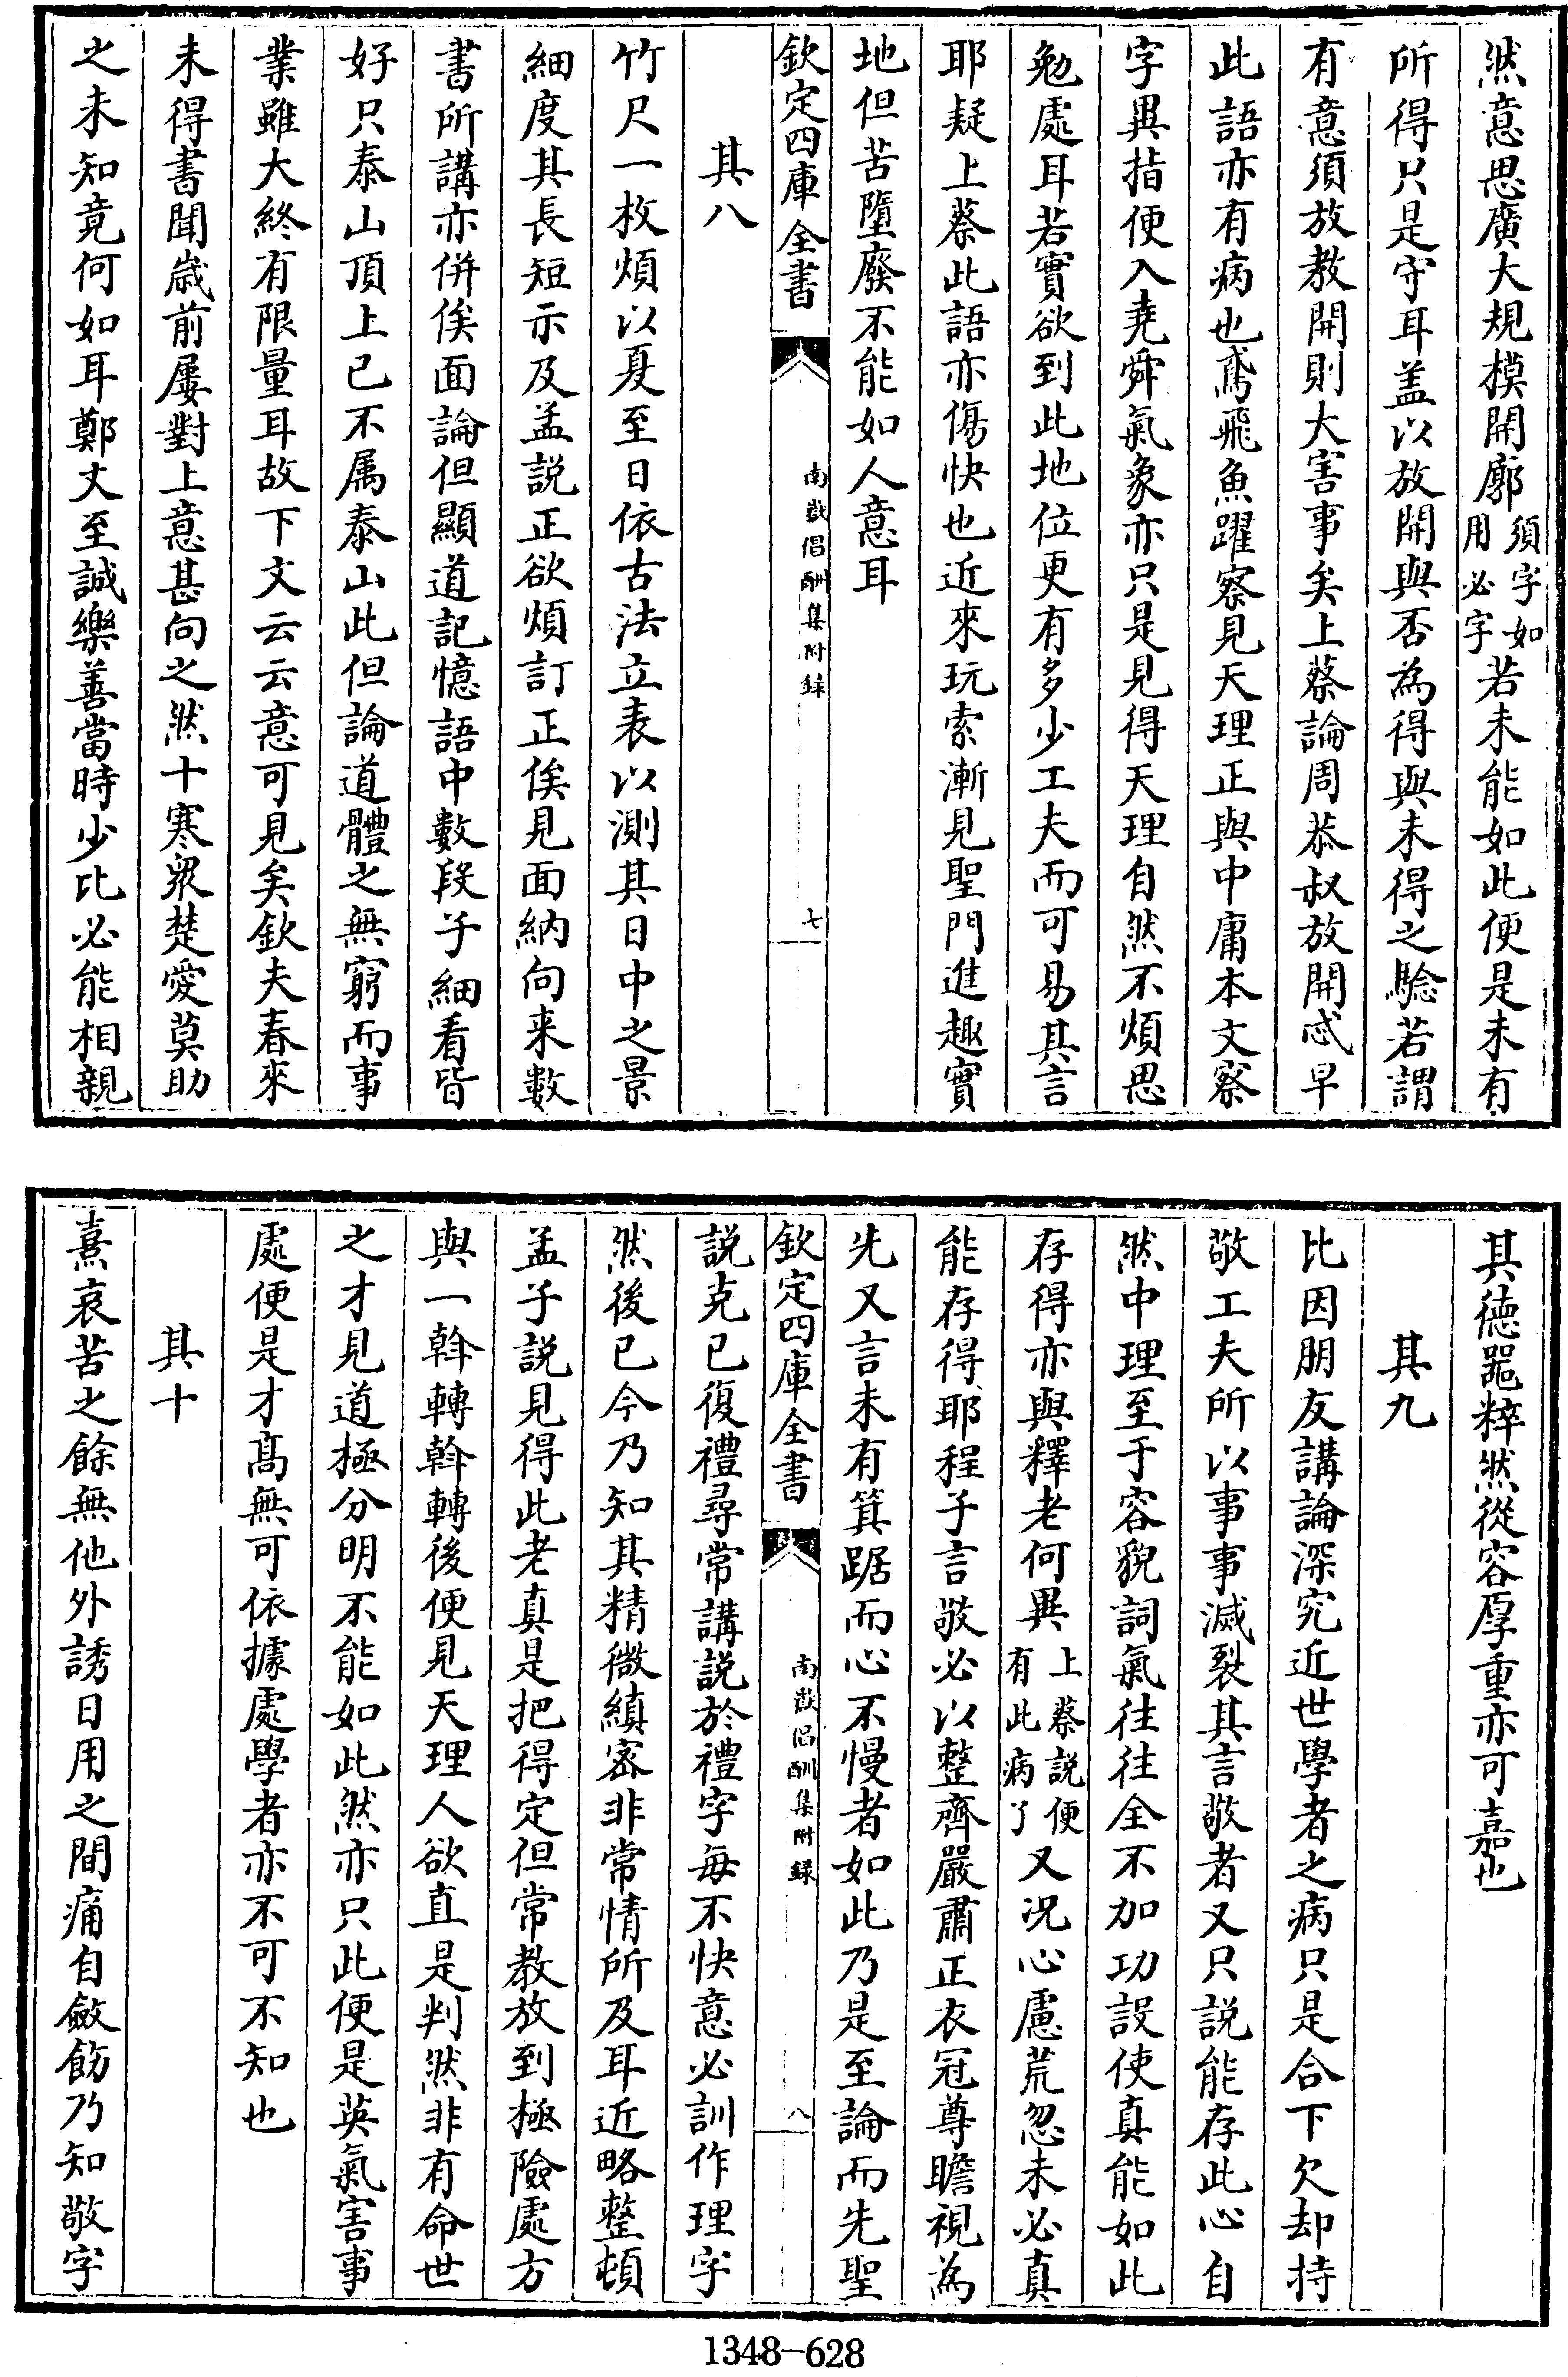 然意思廣大規模開廓須字如用必字若未能如此便是未有
所得只是守耳盖以放開與否為得與未得之驗若謂
有意須放教開則大害事矣上蔡論周恭叔放開忒早
此語亦有病也鳶飛魚躍察見天理正與中庸本文察
字異指便入堯舜氣象亦只是見得天理自然不煩思
勉處耳若實欲到此地位更有多少工夫而可易其言
耶疑上蔡此語亦傷快也近來玩索漸見聖門進趣實
地但苦墮廢不能如人意耳
欽定四庫全書
南嶽倡酬集附録
七
其八
竹尺一枚煩以夏至日依古法立表以測其日中之景
細度其長短示及孟説正欲煩訂正俟見面納向来數
書所講亦併俟面論但顯道記憶語中數段子細看皆
好只泰山頂上已不属泰山此但論道體之無窮而事
業雖大終有限量耳故下文云云意可見矣欽夫春來
未得書聞嵗前屢對上意甚向之然十寒衆楚愛莫助
之未知竟何如耳鄭丈至誠樂善當時少比必能相親
其德器粹然從容厚重亦可嘉也
其九
比因朋友講論深究近世學者之病只是合下欠却持
敬工夫所以事事滅裂其言敬者又只説能存此心自
然中理至于容貌詞氣往往全不加功設使真能如此
存得亦與釋老何異上蔡説便有此病了又况心慮荒忽未必真
能存得耶程子言敬必以整齊嚴肅正衣冠尊瞻視為
先又言未有箕踞而心不慢者如此乃是至論而先聖
欽定四庫全書
南嶽倡酬集附録
八
説克已復禮尋常講説於禮字每不快意必訓作理字
然後已今乃知其精微縝宻非常情所及耳近略整頓
孟子説見得此老真是把得定但常教放到極險處方
與一斡轉斡轉後便見天理人欲直是判然非有命世
之才見道極分明不能如此然亦只此便是英氣害事
處便是才髙無可依據處學者亦不可不知也
其十
熹哀苦之餘無他外誘日用之間痛自斂飭乃知敬字
1348-628